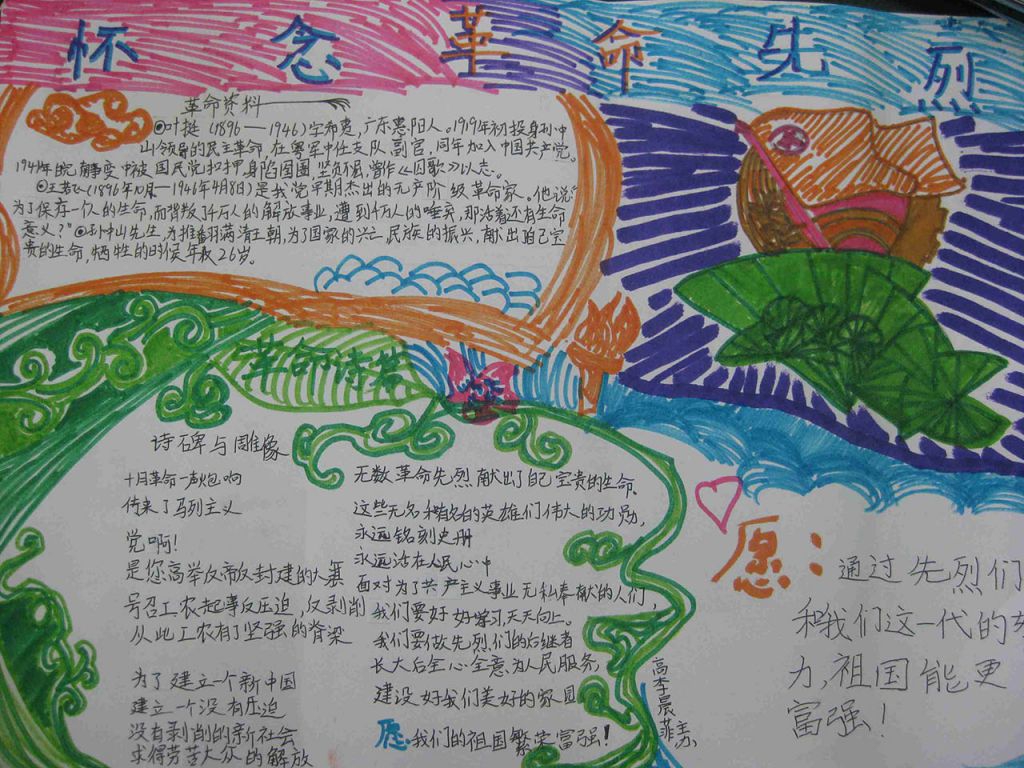 怀念革命先烈
革命资料
叶挺(1896——1946)字希夷，广东惠阳人。1919年初投身孙中
山领导的民主革命，在粤军中任支队副官，同年加入中国共产党。
1941年皖南事变中被国民党扣押，身陷囹圄，坚贞不屈，曾作《囚歌》以志。
王若飞(1896年10月——1946年4月8日)是我党早期杰出的无产阶级革命家。他说"
为了保存一个人的生命，而背叛了千万人的解放事业，遭到千万人的唾弃，那活着还有生命
意义？"孙中山先生，为推翻满清王朝，为了国家的兴亡，民族的振兴，献出自己宝
贵的生命，牺牲的时候年教26岁。
革命诗
诗碑与雕像
十月革命一声炮响
传来了马列主义
党啊！
是您高举反帝反封建的大
号召工农起事反压迫，反剥削
从此工农有了坚强的脊梁
为了建立一个新中国
建立一个没有压迫
没有剥削的新社会
求得劳苦大众的解放
无数革命先烈献出了自己宝贵的生命。
这些无名和有名的英雄们伟大的功勋，
永远铭刻史册
永远活在人民心中
面对为了共产主义事业无私奉献的人们，
我们要好好学习天天向上。
我们要做先烈们的后继者
长大后全心全意为人民服务
建设好我们美好的家园
愿我们的祖国繁荣富强！
愿：
通过先烈们
和我们这一代的
力，祖国能更
富强！